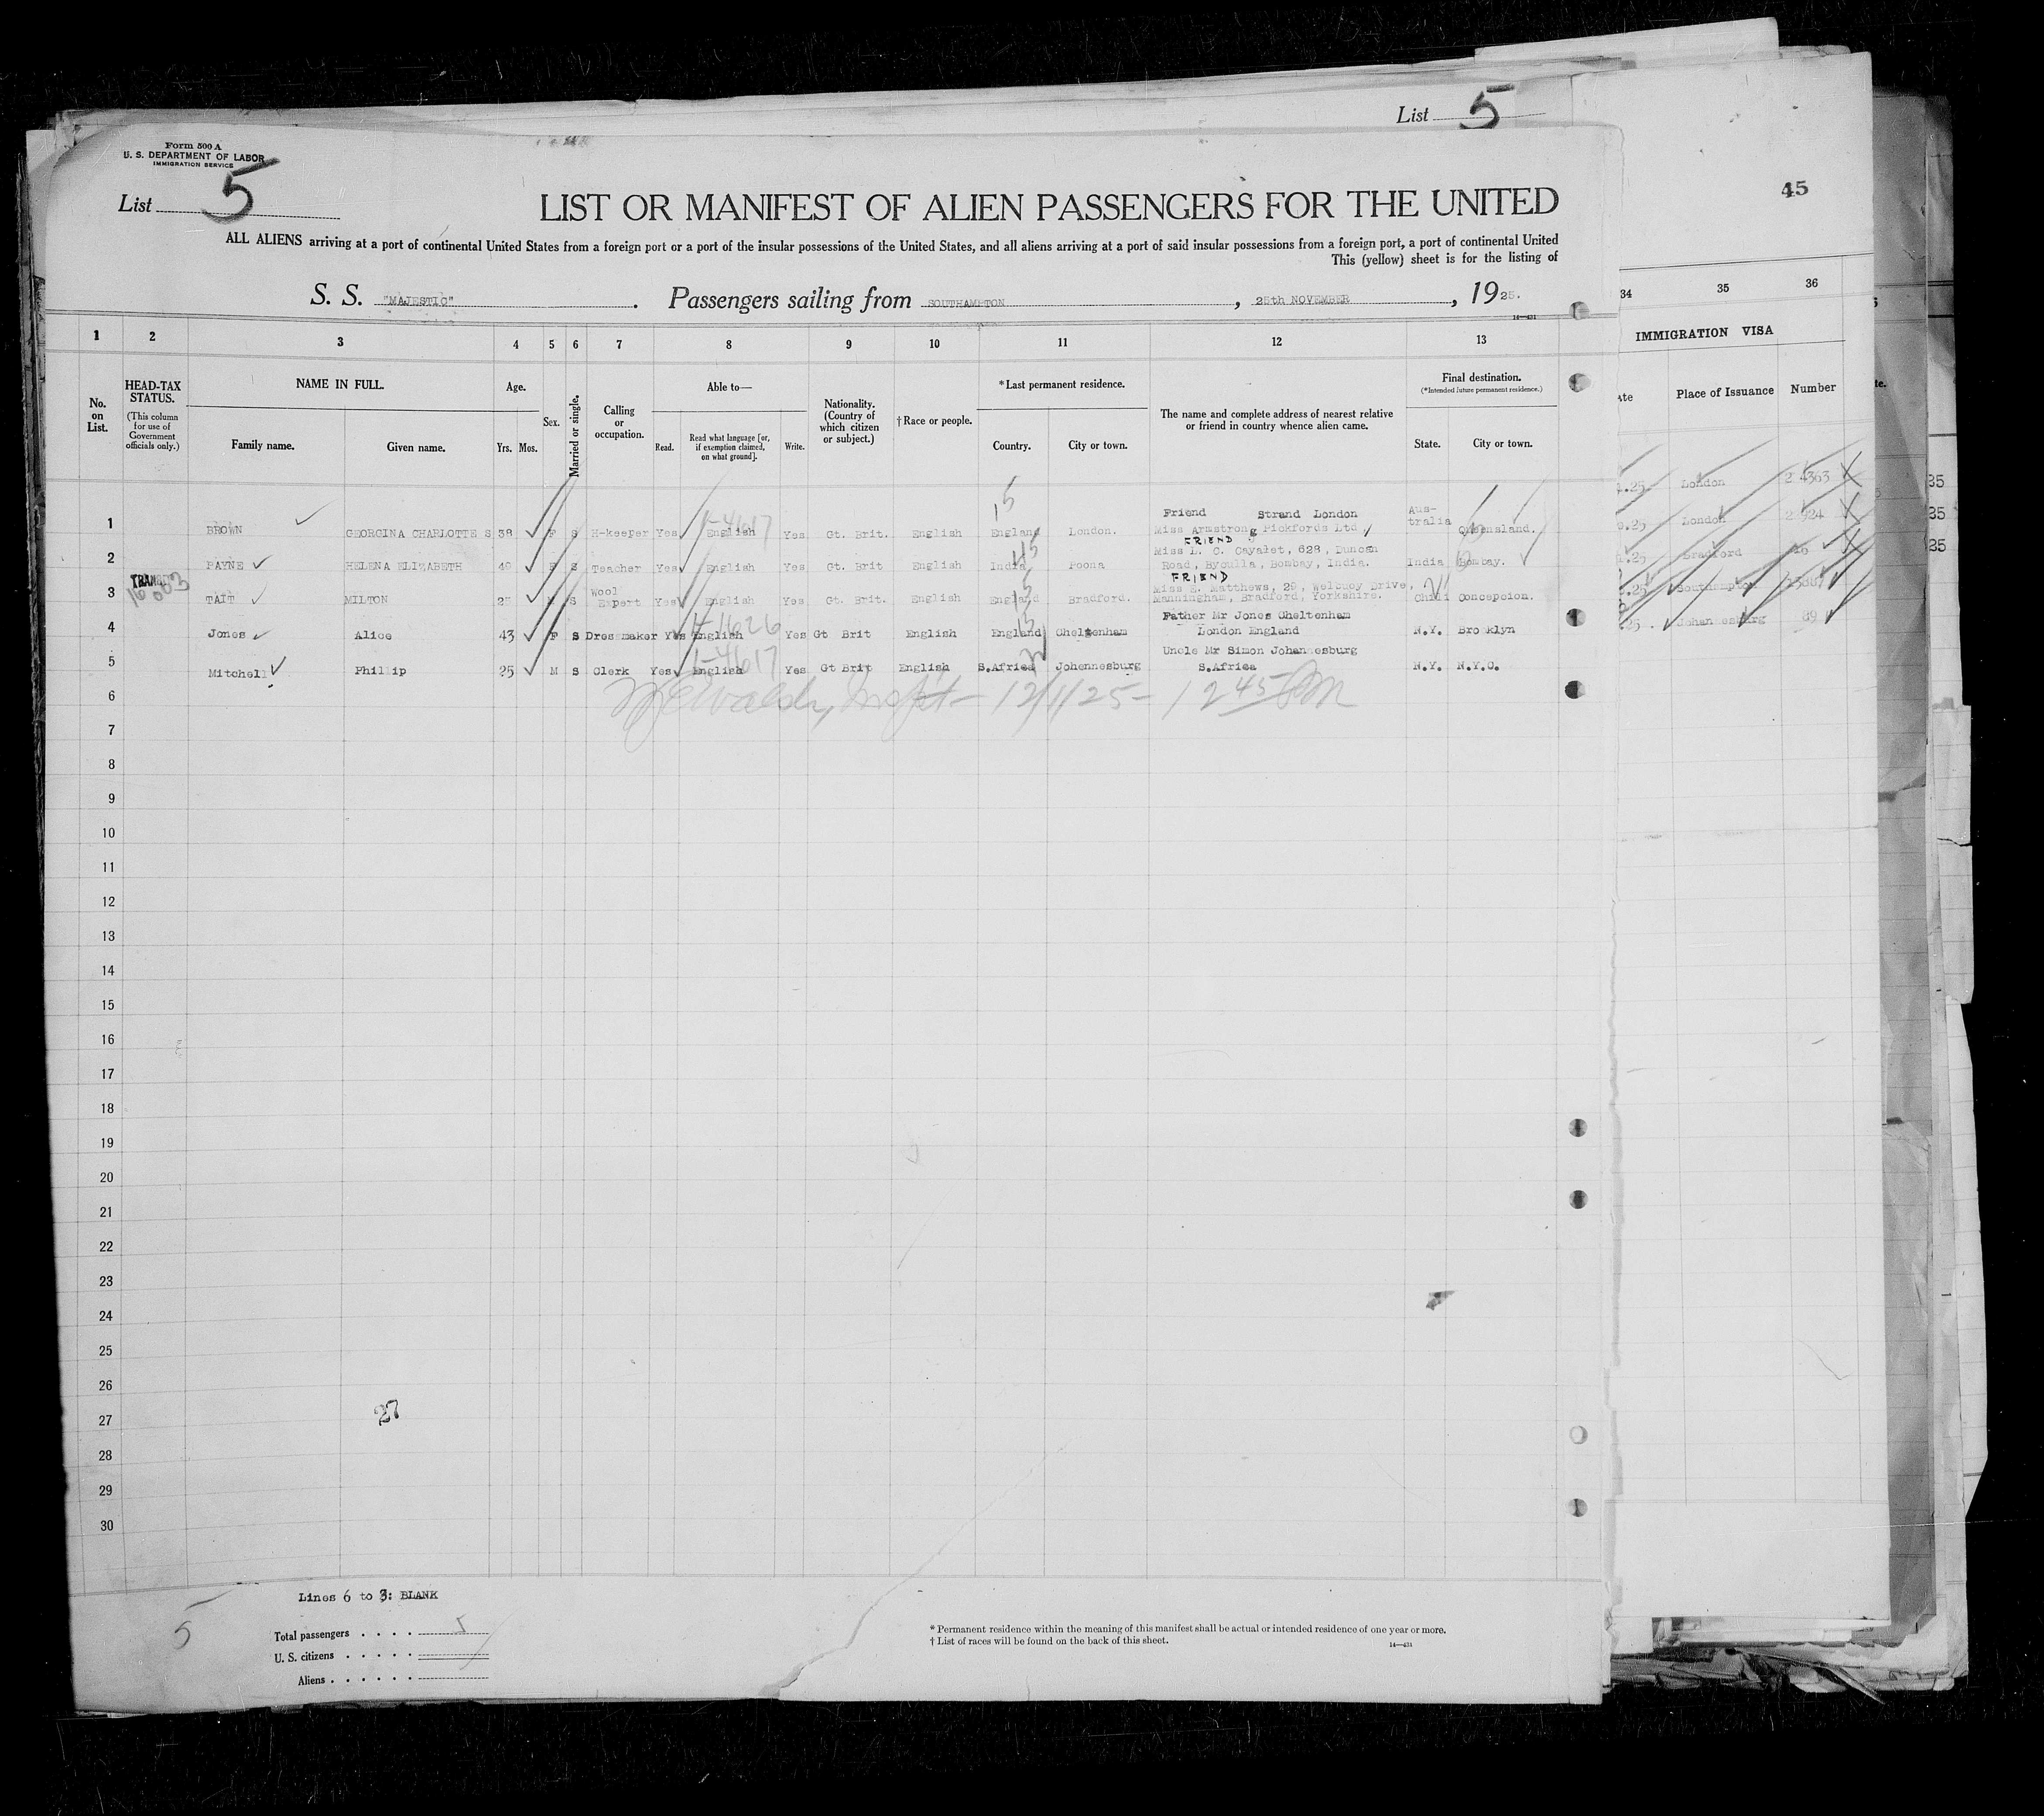 List 5
Form 500 A
U. S. DEPARTMENT OF LABOR
IMMIGRATION SERVICE
List 5
45
LIST OR MANIFEST OF ALIEN PASSENGERS FOR THE UNITED
ALL ALIENS arriving at a port of continental United States from a foreign port or a port of the insular possessions of the United States, and all aliens arriving at a port of said insular possessions from a foreign port, a port of continental United
This (yellow) sheet is for the listing of
S. S. "MAJESTIC". Passengers sailing from SOUTHAMPTON, 25th NOVEMBER, 1925.
14—431
1 2 3 4 5 6 7 8 9 10 11 12 13
34 35 36
IMMIGRATION VISA
Place of Issuance Number
No. on List.
HEAD-TAX STATUS.
(This column for use of Government officials only.)
NAME IN FULL.
Family name. Given name.
Age.
Yrs. Mos.
Sex.
Married or single.
Calling or occupation.
Able to—
Read. Read what language [or, if exemption claimed, on what ground]. Write.
Nationality. (Country of which citizen or subject.)
† Race or people.
*Last permanent residence.
Country. City or town.
The name and complete address of nearest relative or friend in country whence alien came.
Final destination.
(*Intended future permanent residence.)
State. City or town.
1 BROWN GEORGINA CHARLOTTE S 38 F S H-keeper Yes English Yes Gt. Brit. English England London. Friend Strand London Miss Armstrong Pickfords Ltd, Australia Queensland.
2 PAYNE HELENA ELIZABETH 40 F S Teacher Yes English Yes Gt. Brit English India Poona FRIEND Miss L. C. Cayalet, 628, Duncan Road, Byculla, Bombay, India. India Bombay.
3 TAIT MILTON 25 M S Wool Expert Yes English Yes Gt. Brit. English England Bradford. FRIEND Miss E. Matthews, 29, Welbuoy Drive, Manningham, Bradford, Yorkshire. Chili Concepcion.
4 Jones Alice 43 F S Dressmaker Yes English Yes Gt Brit English England Cheltenham Father Mr Jones Cheltenham London England N.Y. Brooklyn
5 Mitchell Phillip 25 M S Clerk Yes English Yes Gt Brit English S.Africa Johennesburg Uncle Mr Simon Johannesburg S.Africa N.Y. N.Y.C.
1-4617
1-4617
London
London
Bradford
Southampton
Johannesburg 89
12/1/25 - 12 45 PM
6
7
8
9
10
11
12
13
14
15
16
17
18
19
20
21
22
23
24
25
26
27
28
29
30
27
Lines 6 to 3: BLANK
5
Total passengers . . . . 5
U. S. citizens . . . . .
Aliens . . . . . .
* Permanent residence within the meaning of this manifest shall be actual or intended residence of one year or more.
† List of races will be found on the back of this sheet.
14—431